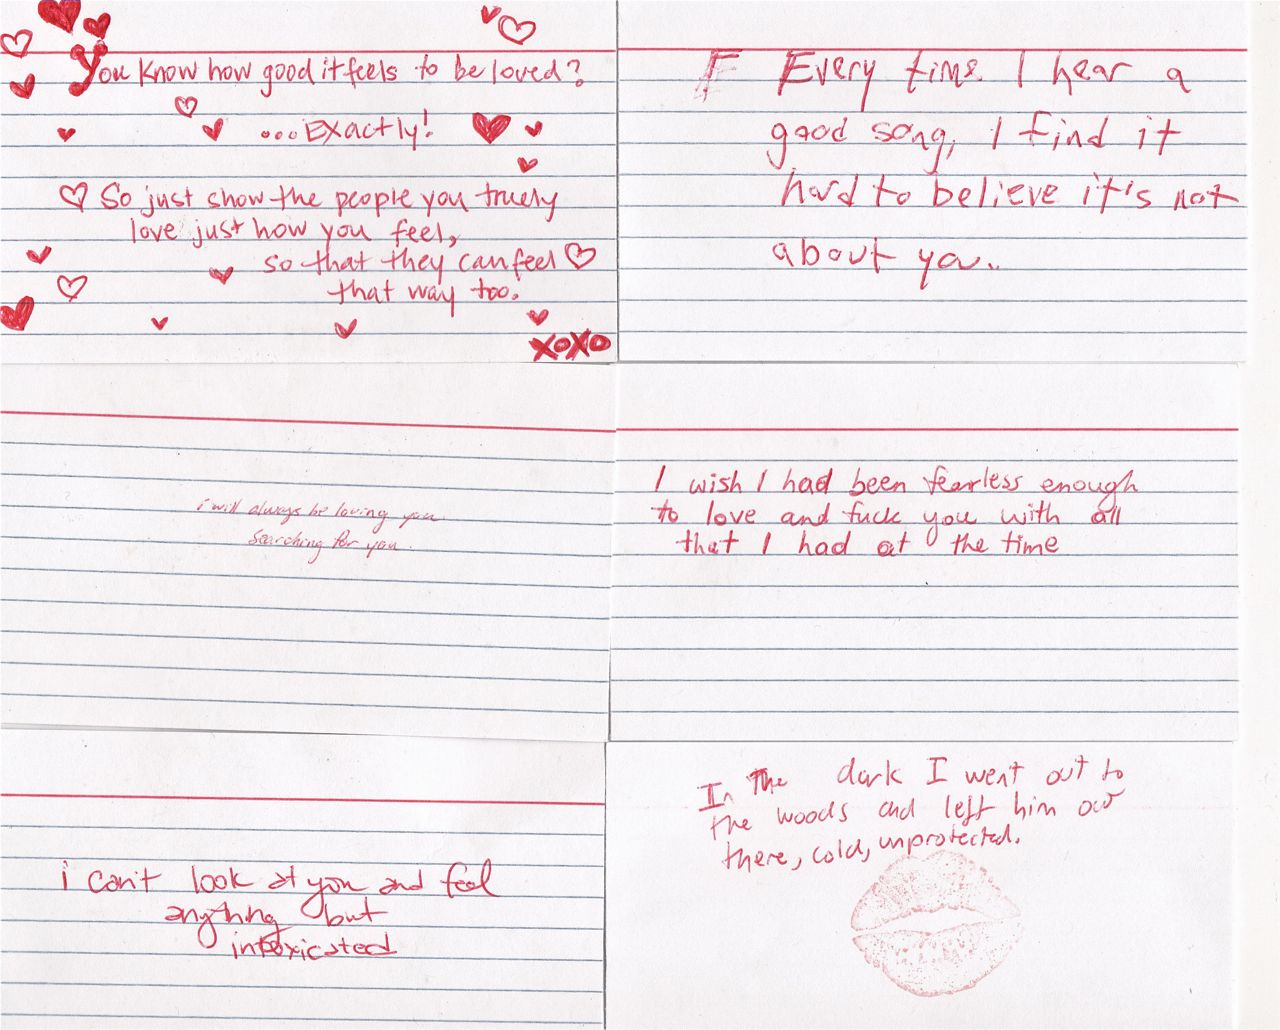 You know how good it feels to be loved?
...Exactly!
So just show the people you truely
love just how you feel,
so that they can feel
that way too!
XOXO
F Every time I hear a
good song, I find it
hard to believe it's not
about you.
i will always be loving you
searching for you.
I wish I had been fearless enough
to love and fuck you with all
that I had at the time
i can't look at you and feel
anything but
intoxicated
In the dark I went out to
the woods and left him out
there, cold, unprotected.